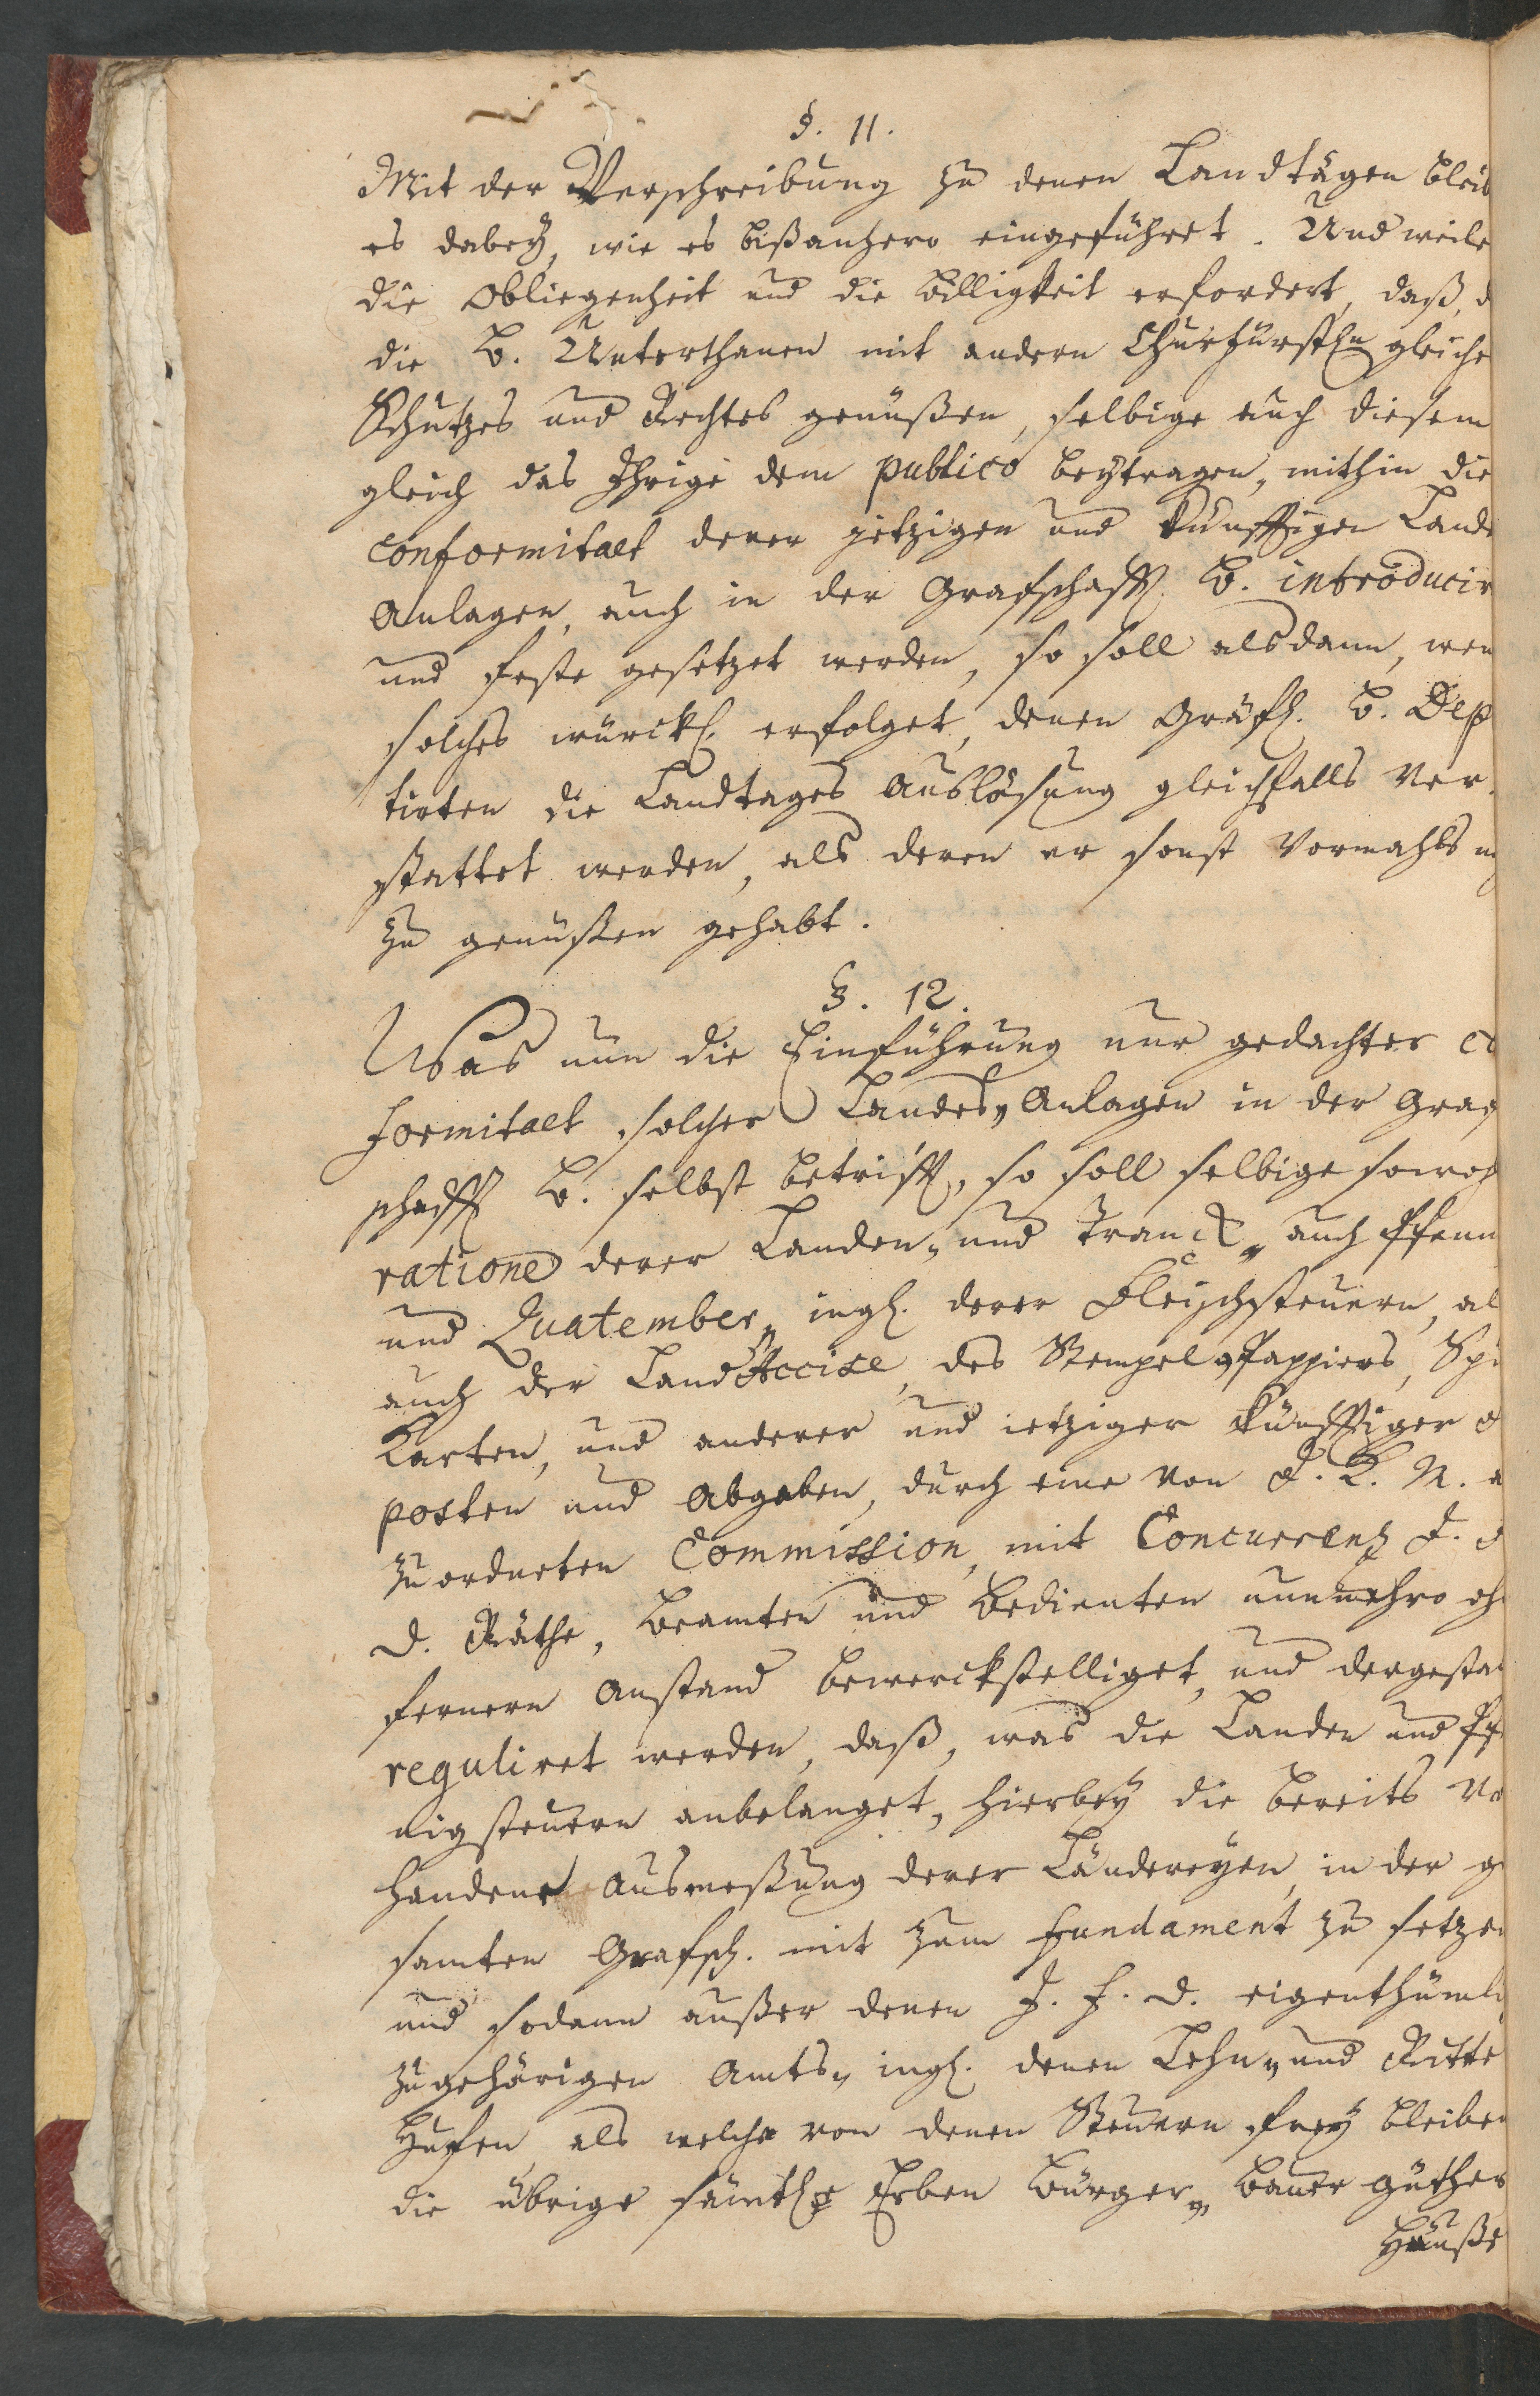 §. 11.
Mit der Verschreibung zu denen Landtägen bleib
es dabey, wie es bißanhero eingeführet. Und weile
die Obliegenheit und die Billigkeit erfordert, daß, d
die B. Unterthanen mit andern Churfürstln gleiche
Schutzes und Rechtes genüßen, selbige auch diesem
gleich das Ihrige dem publico beytragen, mithin die
conformitaet derer jetzigen und künfftigen Lande
Anlagen, auch in der Grafschafft B. introducir
und feste gesetzet werden, so soll alsdann, wen
solches würckl. erfolget, denen Gräfl. B. Dep
tirten die Landtages Auslösung gleichfalls ver-
stattet werden, als deren er sonst vormahls
zu genüßen gehabt.
§. 12.
Was nun die Einführung nur gedachter co
formitaet solcher Landes-Anlagen in der Graf
schafft B. selbst betrifft, so soll selbige sowoh
ratione derer Landen- und Tranck- auch Pfenn
und Quatember- ingl. derer Fleischsteuern, al
auch der Land Accise, des Stempel-Pappiers, Spi
Karten, und anderer und ietziger künfftiger
posten und Abgaben, durch eine von I. K. M. a
zuordneten Commission, mit Concurrenz I.
D. Räthe, Beamten und Bedienten nunmehro oh
fernern Anstand bewerckstelliget, und dergestal
reguliret werden, daß, was die Landen und Pf
nigsteuern anbelanget, hierbey die bereits vo
handene Ausmeßung derer Ländereyen, in der ge
samten Grafsch. mit zum Fundament zu setzen
und sodann außer denen I. F. D. eigenthümli
zugehörigen Amts- ingl. denen Lehn- und Ritte
Hufen, als welche von denen Steuern frey bleiben
die übrige sämtle Erben Bürger- Bauer Güther
Häuße